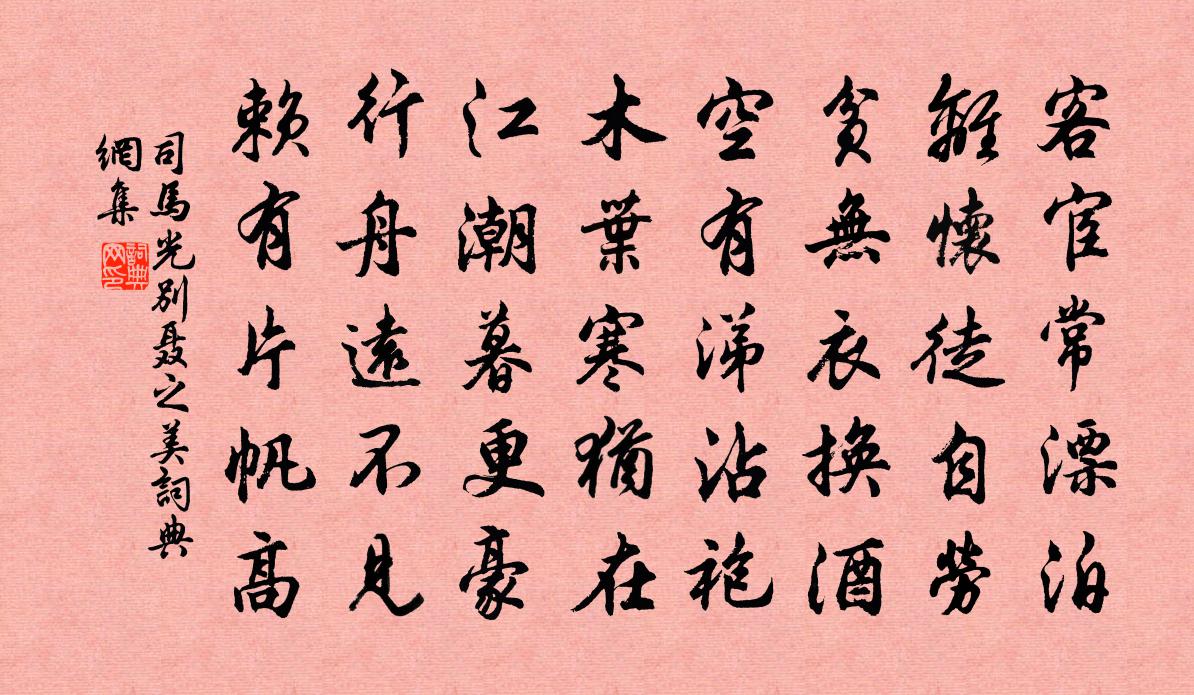 客宦常漂泊
離懷徒自勞
貧無衣換酒
空有涕沾袍
木葉寒猶在
江潮暮更豪
行舟遠不見
賴有片帆高
司馬光別聂之美詞典
網集
詞典
网印